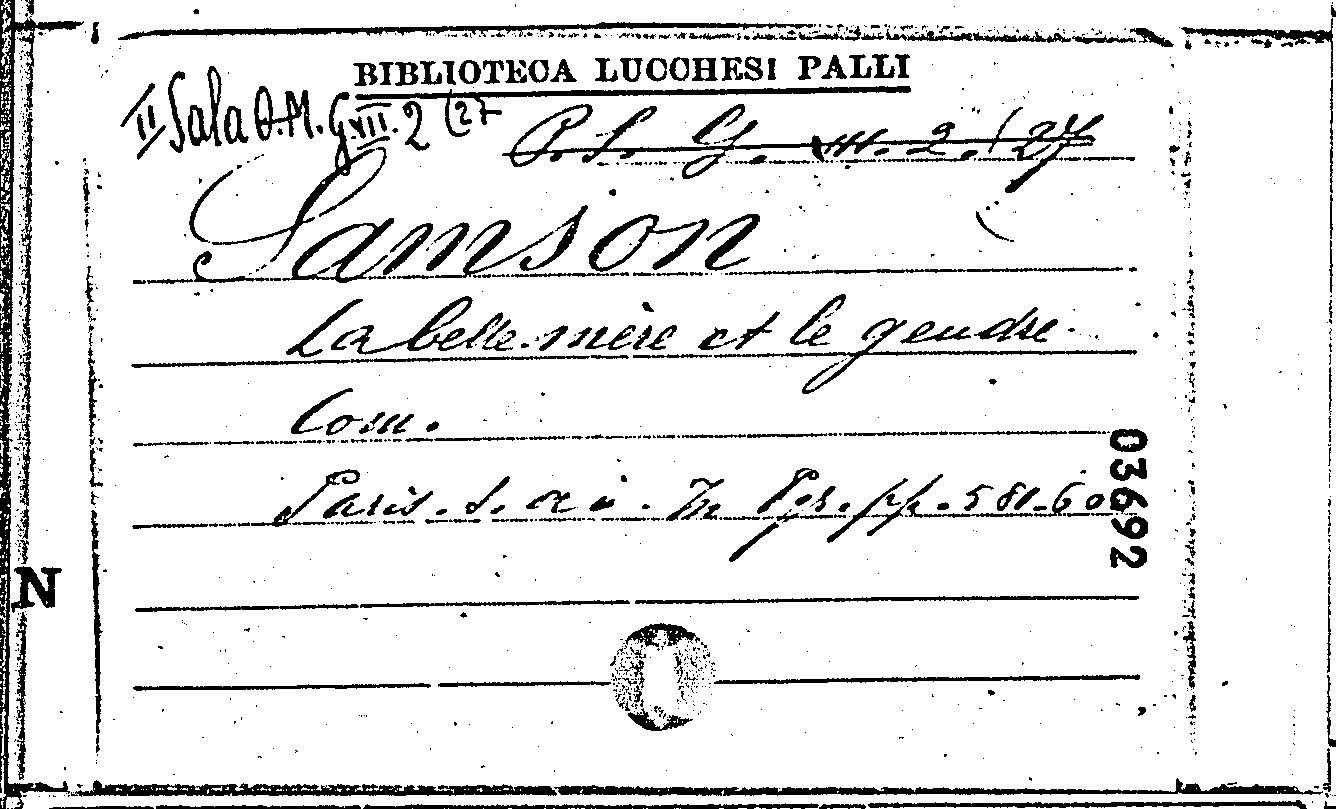 BIBLIOTECA LUCCHESI PALLI
II Sala O.M. G.VII.2 (27
P. S. G. VII. 2. (27
Samson
La belle-mère et le gendre.
Com.
Paris. s. a. in. pp. 581-60
03692
N